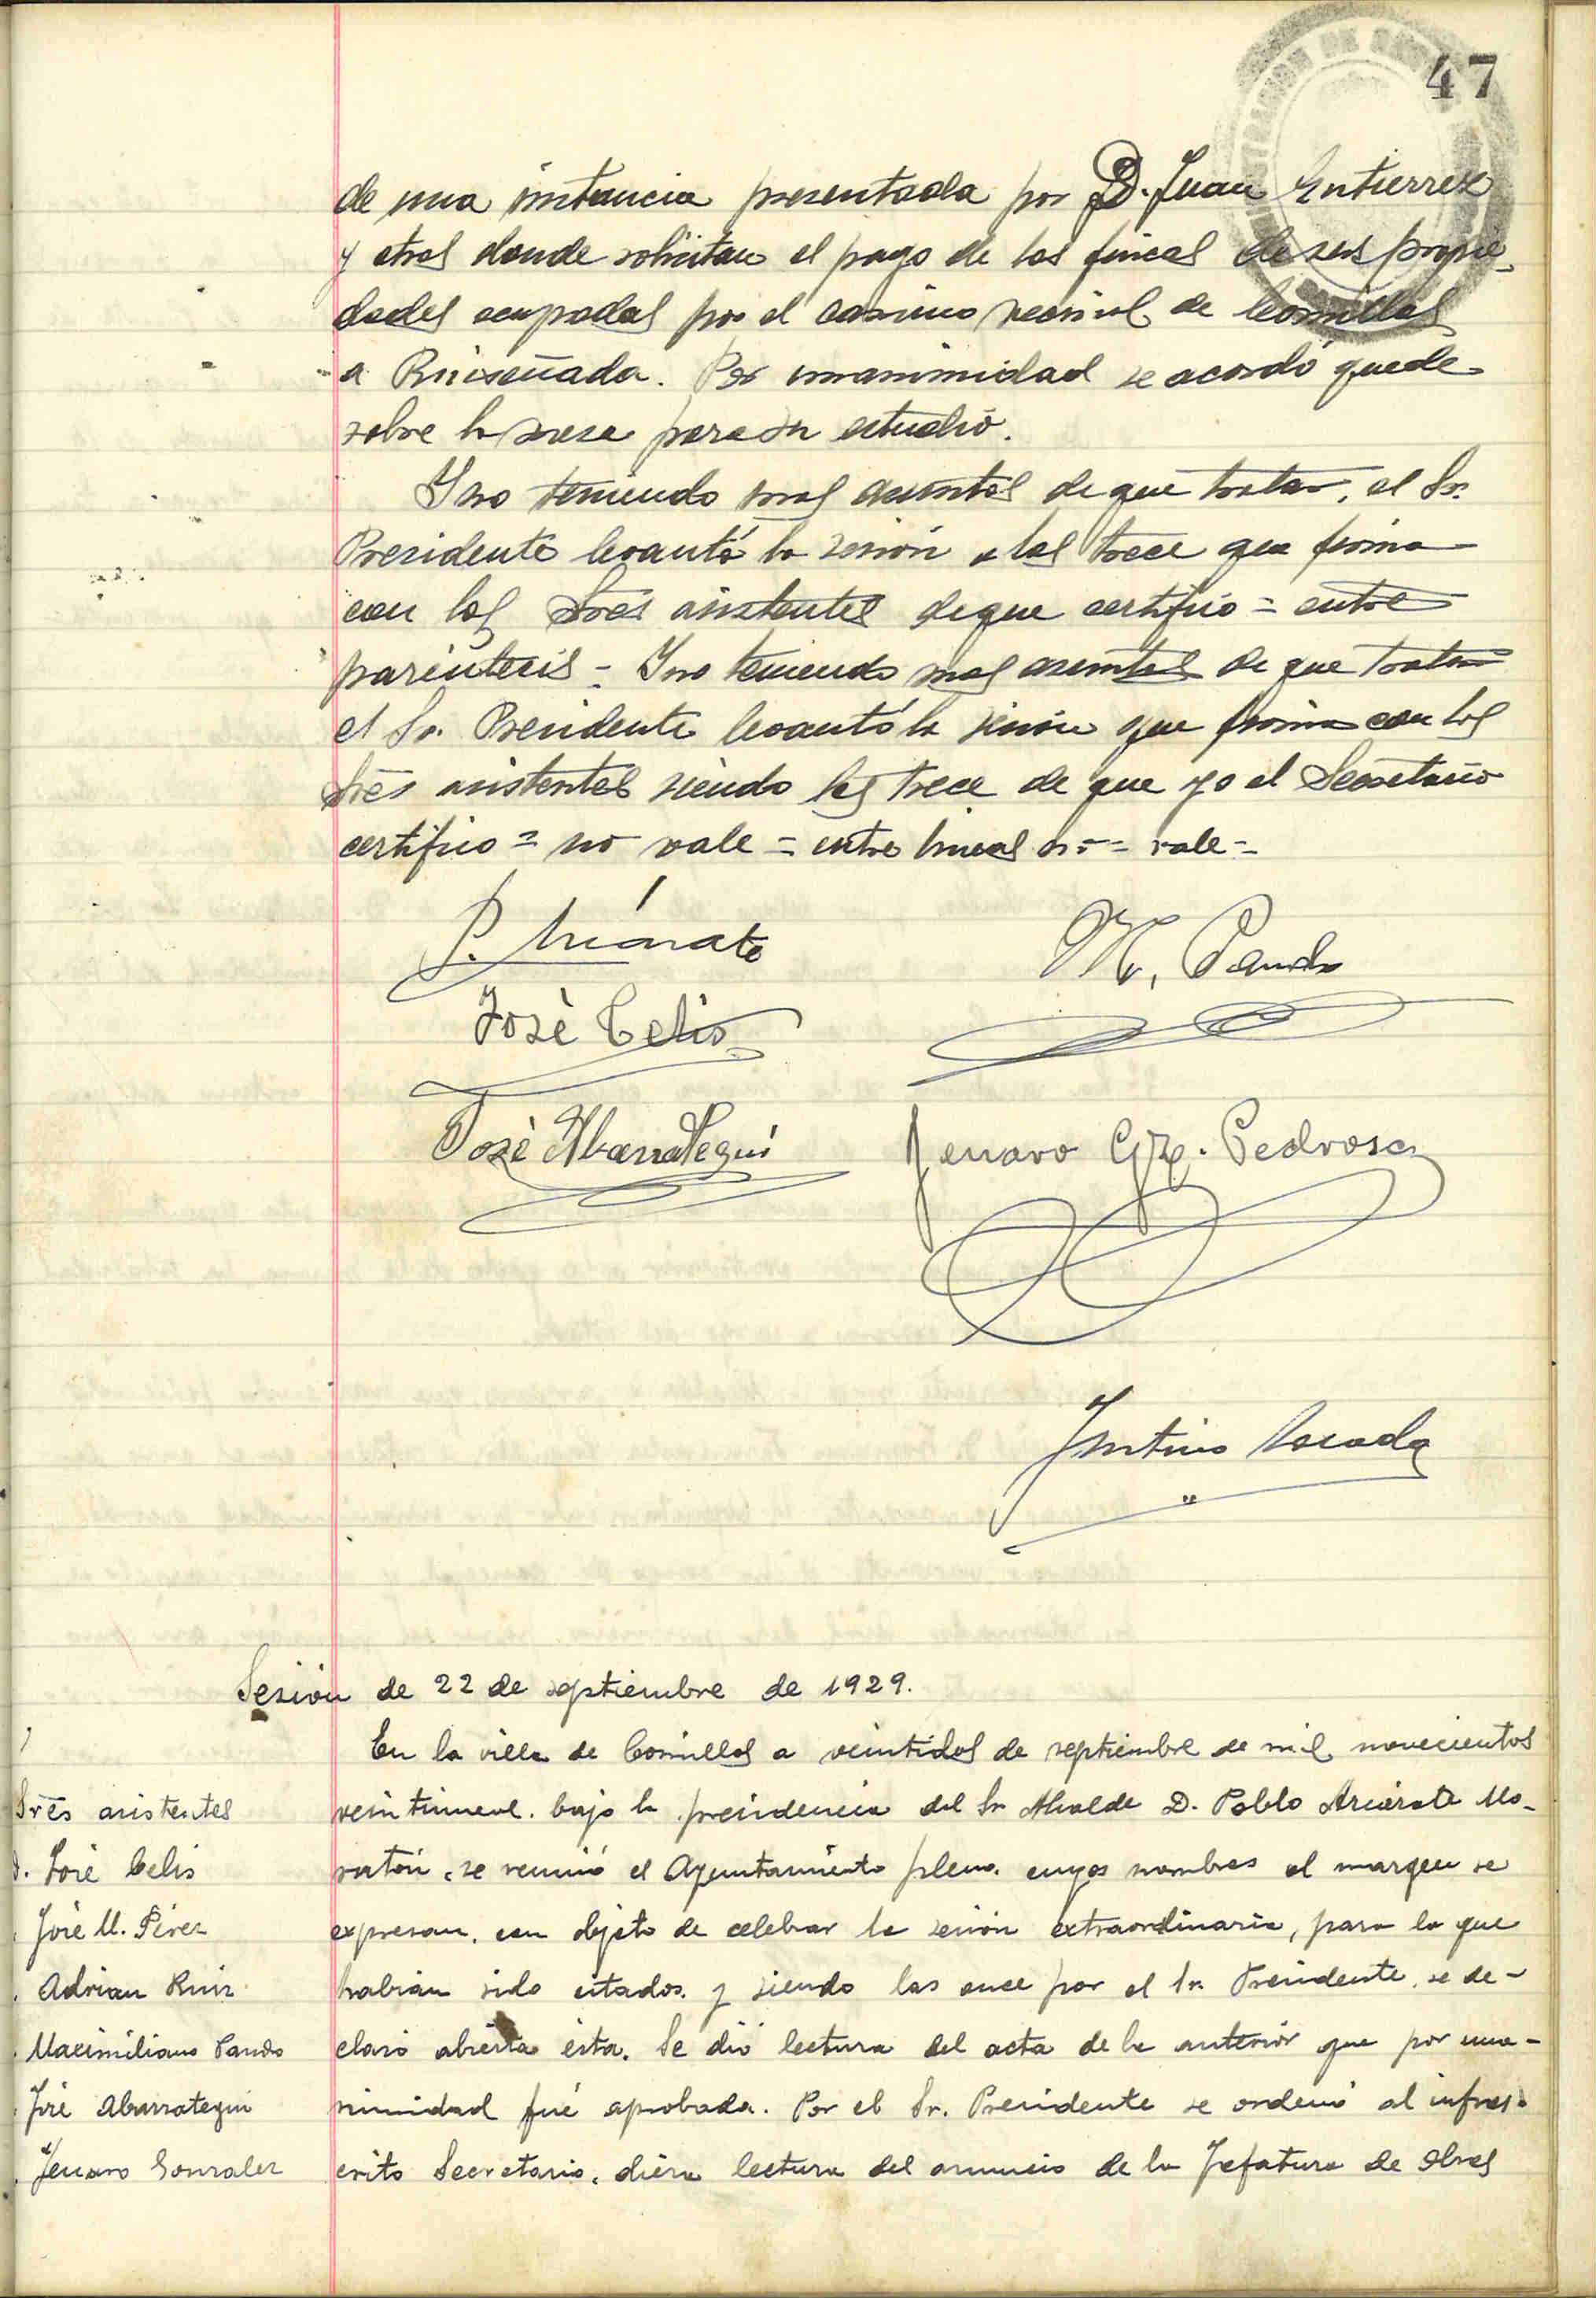 47
de una instancia presentada por D. Juan Gutierrez
y otros donde solicitan el pago de las fincas de sus propie-
dades ocupadas por el camino vecinal de Comillas
a Ruiseñada. Por unanimidad se acordó quede
sobre la mesa para su estudio.
Y no teniendo mas asuntos de que tratar, el Sr.
Presidente levantó la sesión a las trece que firma
con los Sres asistentes de que certifico = entre
paréntesis - Y no teniendo mas asuntos de que tratar
el Sr. Presidente levantó la sesión que firma con los
Sres asistentes siendo las trece de que yo el Secretario
certifico = no vale = entre lineas = vale =
P. Arcárate
M. Pando
José Celis
José Abarrategui
Jenaro Gz. Pedrosa
Justino
Sesión de 22 de septiembre de 1929.
En la villa de Comillas a veintidos de septiembre de mil novecientos
veintinueve. bajo la presidencia del Sr Alcalde D. Pablo Arcárate Mo-
ratón, se reunió el Ayuntamiento pleno. cuyos nombres al margen se
expresan, con objeto de celebrar la sesión extraordinaria, para lo que
habian sido citados. y siendo las once por el Sr. Presidente, se de-
claró abierta ésta. Se dió lectura del acta de la anterior que por una-
nimidad fué aprobada. Por el Sr. Presidente se ordenó al infras-
crito Secretario, diera lectura del anuncio de la Jefatura de Obras
Sres asistentes
D. José Celis
José M. Pérez
Adrian Ruiz
Maximiliano Pando
José Abarrategui
Jenaro Gonzalez